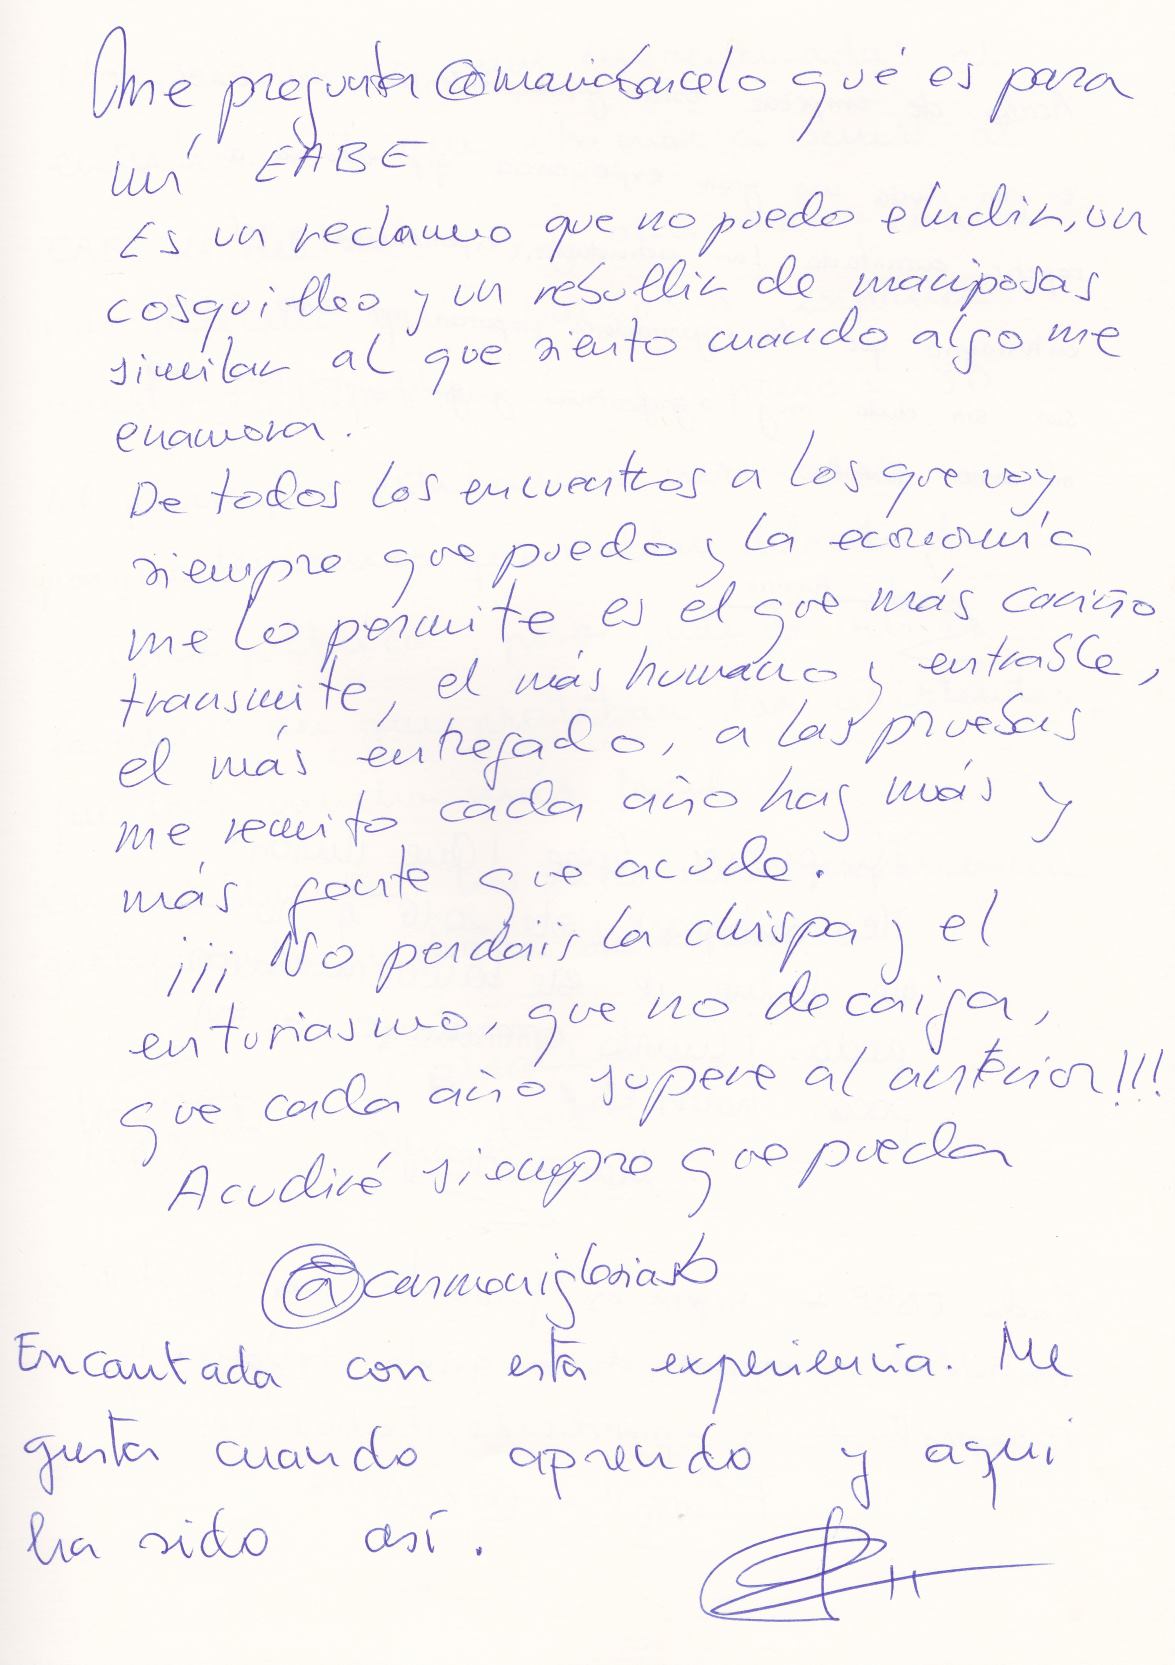 Me pregunta @mariabarcelo qué es para
mí EABE
Es un reclamo que no puedo eludir, un
cosquilleo y un rebullir de mariposas
similar al que siento cuando algo me
enamora.
De todos los encuentros a los que voy
siempre que puedo y la economía
me lo permite es el que más cariño
transmite, el más humano y entrable,
el más entregado, a las pruebas
me remito cada año hay más y
más gente que acude.
¡¡¡No perdais la chispa y el
entusiasmo, que no decaiga,
que cada año supere al anterior!!!
Acudiré siempre que pueda
@carmeniglesiasb
Encantada con esta experiencia. Me
gusta cuando aprendo y aquí
ha sido así.